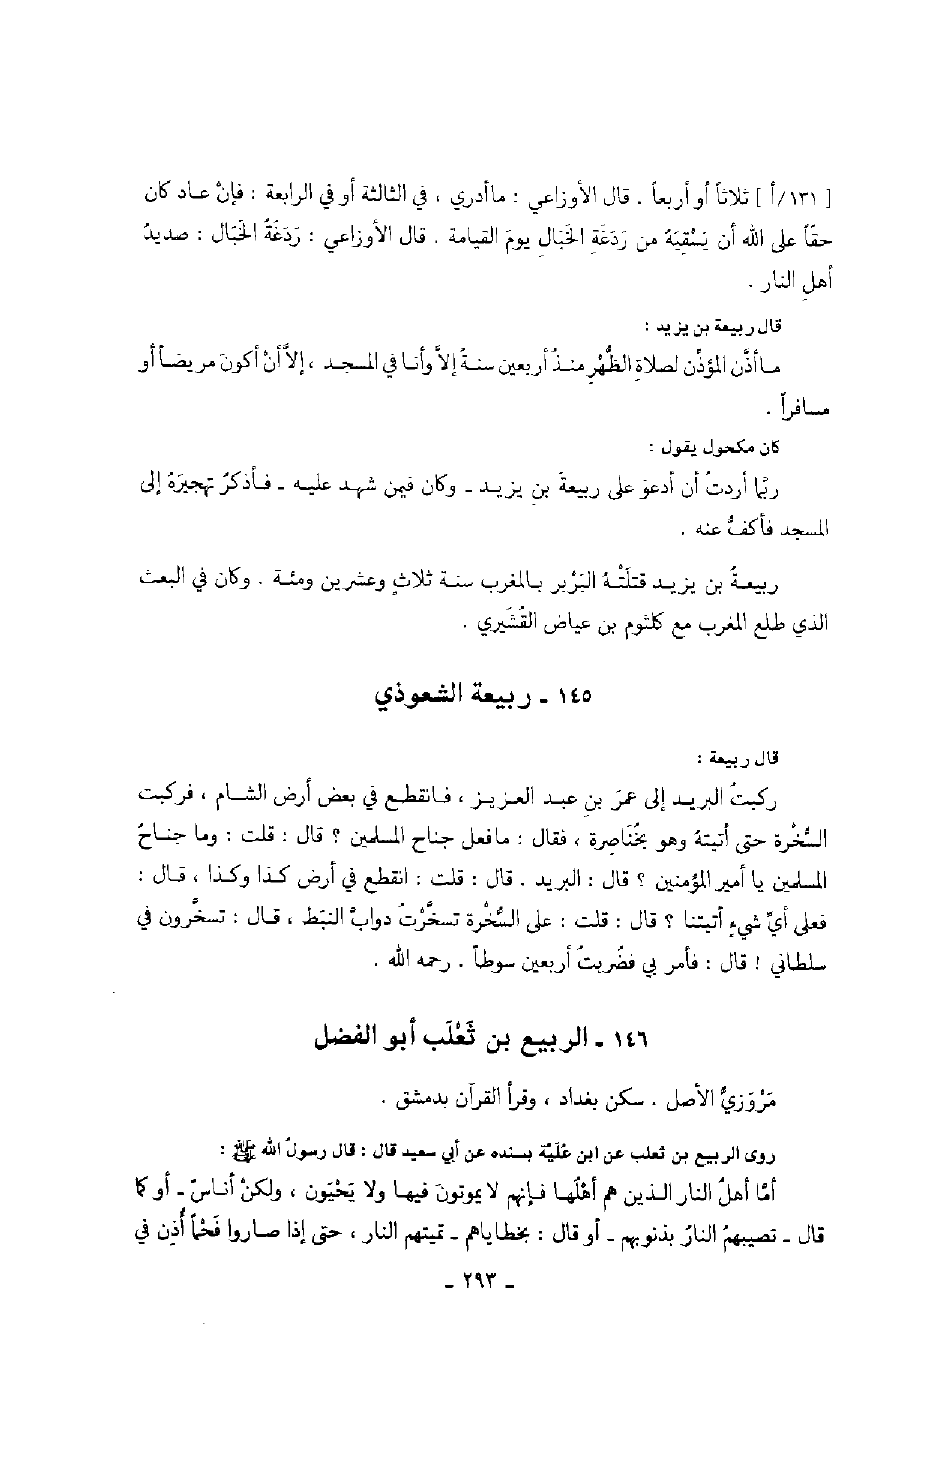 [ ١٣١/أ ] ثلاثاً أو أربعاً . قال الأوزاعي : ماأدري ، في الثالثة أو في الرابعة : فإنْ عاد كان
حقاً على الله أن يَسْقِيَهُ من رَدَغَةِ الخَبَالِ يومَ القيامة . قال الأوزاعي : رَدَغَةُ الخَبَال : صديدُ
أهلِ النار .
قال ربيعة بن يزيد :
ماأذَّن المؤذّن لصلاةِ الظُّهْرِ منذُ أربعين سنةً إلاَّ وأنا في المسجد ، إلاَّ أنْ أكونَ مريضاً أو
مسافراً .
كان مكحول يقول :
ربَّما أردتُ أن أدعوَ على ربيعةَ بنِ يزيد ـ وكان فيمن شهد عليه ـ فأذكرُ تهجيرَهُ إلى
المسجد فأكفُّ عنه .
ربيعةُ بن يزيد قتلَتْهُ البَرْبر بالمغرب سنة ثلاثٍ وعشرين ومئة . وكان في البعث
الذي طلع المغرب مع كلثوم بن عياض القُشَيري .
١٤٥ ـ ربيعة الشعوذي
قال ربيعة :
ركبتُ البريد إلى عمرَ بنِ عبد العزيز ، فانقطع في بعض أرض الشام ، فركبت
السُّخْرة حتى أتيتهُ وهو بخُنَاصِرة ، فقال : مافعل جناح المسلمين ؟ قال : قلت : وما جناحُ
المسلمين يا أمير المؤمنين ؟ قال : البريد . قال : قلت : انقطع في أرض كذا وكذا ، قال :
فعلى أيِّ شيءٍ أتيتنا ؟ قال : قلت : على السُّخْرة تسخَّرْتُ دوابَّ النبَط ، قال : تسخَّرون في
سلطاني ! قال : فأمر بي فضُربتُ أربعين سوطاً . رحمه الله .
١٤٦ ـ الربيع بن ثَعْلَب أبو الفضل
مَرْوَزيُّ الأصل . سكن بغداد ، وقرأ القرآن بدمشق .
روى الربيع بن ثعلب عن ابن عُلَيَّة بسنده عن أبي سعيد قال : قال رسولُ الله ﷺ :
أمَّا أهلُ النار الذين هم أهلُها فإنهم لا يموتون فيها ولا يَحْيَون ، ولكنْ أناسٌ ـ أو كما
قال ـ تصيبهمُ النارُ بذنوبهم ـ أو قال : بخطاياهم ـ تميتهم النار ، حتى إذا صاروا فَحْماً أُذِن في
ـ ٢٩٣ ـ